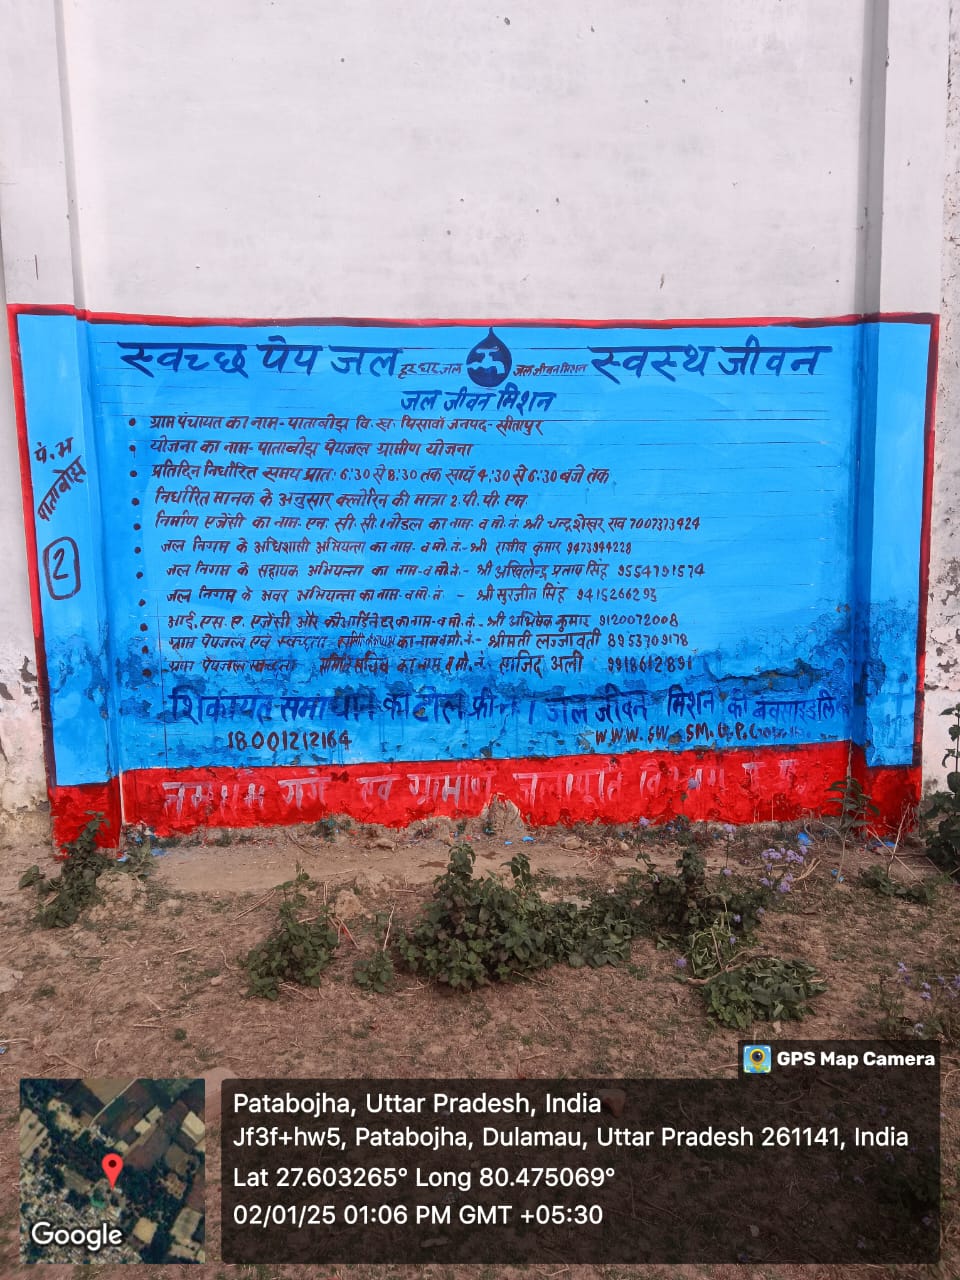 स्वच्छ पेय जल हर घर जल जल जीवन मिशन स्वस्थ जीवन
जल जीवन मिशन
• ग्राम पंचायत का नाम- पाताबोझ वि. ख. पिसावाँ जनपद- सीतापुर
• योजना का नाम- पाताबोझ पेयजल ग्रामीण योजना
• प्रतिदिन निर्धारित समय प्रातः 6:30 से 8:30 तक सायं 4:30 से 6:30 बजे तक
• निर्धारित मानक के अनुसार क्लोरिन की मात्रा 2. पी. पी. एम.
• निर्माण एजेंसी का नाम- एन. सी. सी. नोडल का नाम- व मो. नं. श्री चन्द्रशेखर राव 7007373424
• जल निगम के अधिशासी अभियन्ता का नाम- व मो. नं.- श्री राजीव कुमार 9473944228
• जल निगम के सहायक अभियन्ता का नाम- व मो. नं.- श्री अखिलेन्द्र प्रताप सिंह 9554791574
जल निगम के अवर अभियन्ता का नाम- व मो. नं. - श्री सुरजीत सिंह 9415266293
• आई. एस. ए. एजेंसी और कोआर्डिनेटर का नाम- व मो. नं.- श्री अभिषेक कुमार 9120072008
• ग्राम पेयजल एवं स्वच्छता का नाम व मो. नं.- श्रीमती लज्जावती 8953709178
• ग्राम पेयजल स्वच्छता समिति सचिव का नाम व मो. नं. साजिद अली 9918612891
शिकायत समाधान का टोल फ्री नं. जल जीवन मिशन की
18001212164 WWW. SW SM. U.P.
नमामि गंगे एवं ग्रामीण जलापूर्ति विभाग उ. प्र.
पं. भ
पाताबोझ
2
GPS Map Camera
Patabojha, Uttar Pradesh, India
Jf3f+hw5, Patabojha, Dulamau, Uttar Pradesh 261141, India
Lat 27.603265° Long 80.475069°
02/01/25 01:06 PM GMT +05:30
Google